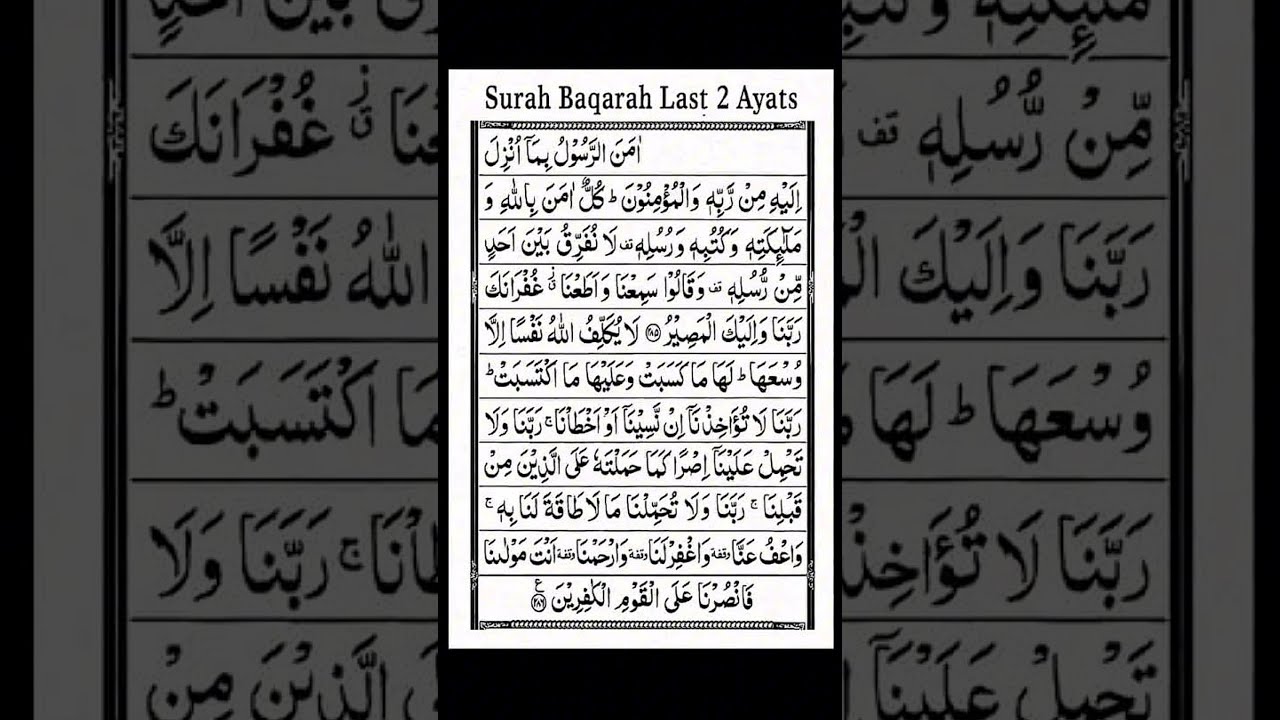 Surah Baqarah Last 2 Ayats
اٰمَنَ الرَّسُوْلُ بِمَاۤ اُنْزِلَ
اِلَيْهِ مِنْ رَّبِّهٖ وَالْمُؤْمِنُوْنَ ؕ كُلٌّ اٰمَنَ بِاللّٰهِ وَ
مَلٰٓئِكَتِهٖ وَكُتُبِهٖ وَرُسُلِهٖ قف لَا نُفَرِّقُ بَيْنَ اَحَدٍ
مِّنْ رُّسُلِهٖ قف وَقَالُوْا سَمِعْنَا وَاَطَعْنَا ۫ق غُفْرَانَكَ
رَبَّنَا وَاِلَيْكَ الْمَصِيْرُ ﴿۲۸۵﴾ لَا يُكَلِّفُ اللّٰهُ نَفْسًا اِلَّا
وُسْعَهَا ؕ لَهَا مَا كَسَبَتْ وَعَلَيْهَا مَا اكْتَسَبَتْ ؕ
رَبَّنَا لَا تُؤَاخِذْنَاۤ اِنْ نَّسِيْنَاۤ اَوْ اَخْطَاْنَا ۚ رَبَّنَا وَلَا
تَحْمِلْ عَلَيْنَاۤ اِصْرًا كَمَا حَمَلْتَهٗ عَلَى الَّذِيْنَ مِنْ
قَبْلِنَا ۚ رَبَّنَا وَلَا تُحَمِّلْنَا مَا لَا طَاقَةَ لَنَا بِهٖ ۚ
وَاعْفُ عَنَّا وقفة وَاغْفِرْ لَنَا وقفة وَارْحَمْنَا وقفة اَنْتَ مَوْلٰىنَا
فَانْصُرْنَا عَلَى الْقَوْمِ الْكٰفِرِيْنَ ﴿۲۸۶﴾ ع